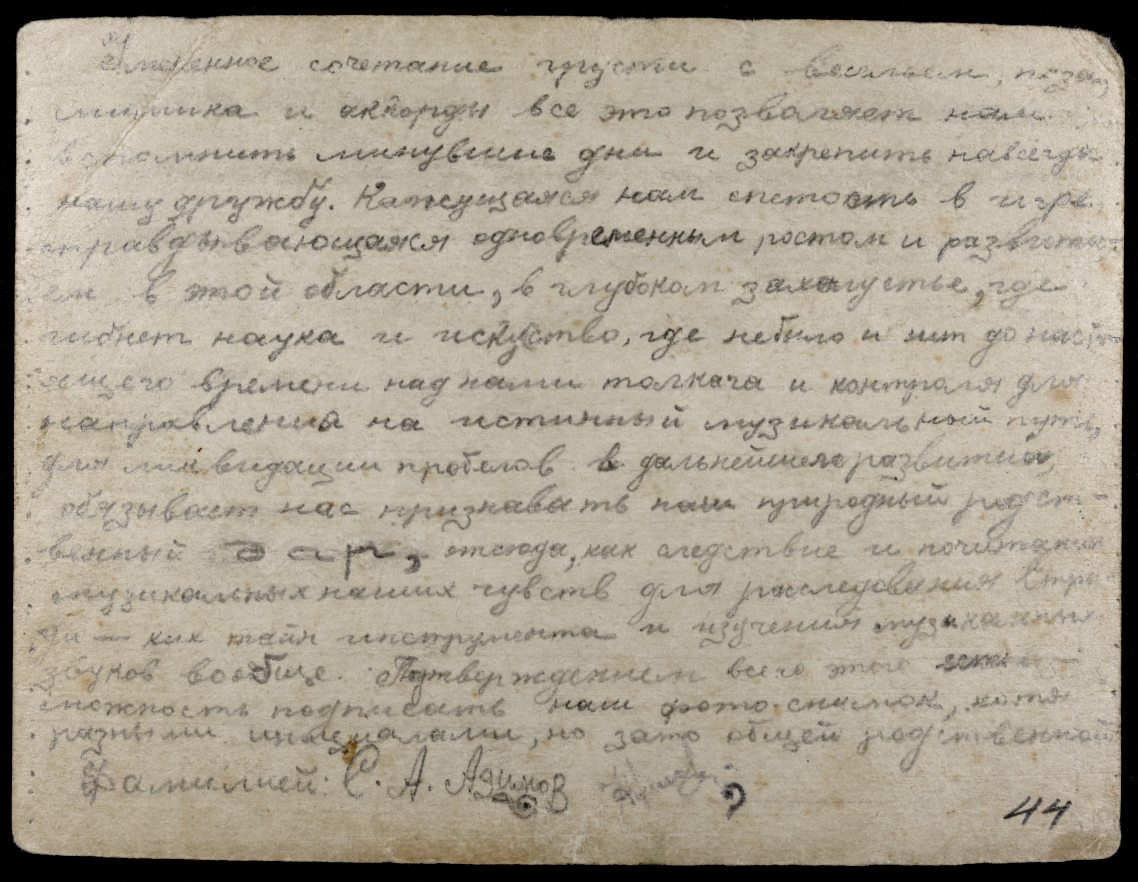 сочетание грусти с весельем, поза,
мимика и аккорды все это позваляет нам
вспомнить минувшие дни и закрепить навсегда
нашу дружбу. Кажущаяся нам спетость в игре
оправдывающаяся одновременным ростом и развити-
ем в этой области, в глубоком захолустье, где
гибнет наука и искуство, где небыло и нет до наст-
ящего времени над нами толкача и контроля для
направления на истинный музикальный путь,
для ликвидации пробелов в дальнейшем развитии,
обязывает нас признавать наш природный родст-
венный дар, отсюда, как следствие и почитание
музикальных наших чувств для расследования
как тайн инструмента и изучения музикальных
звуков вообще. Потверждением всего этого есть воз-
можность подписать наш фото-снимок, хотя
разными инициалами, но зато общей родственной
Фамилией: С. А. Азимов ?
44